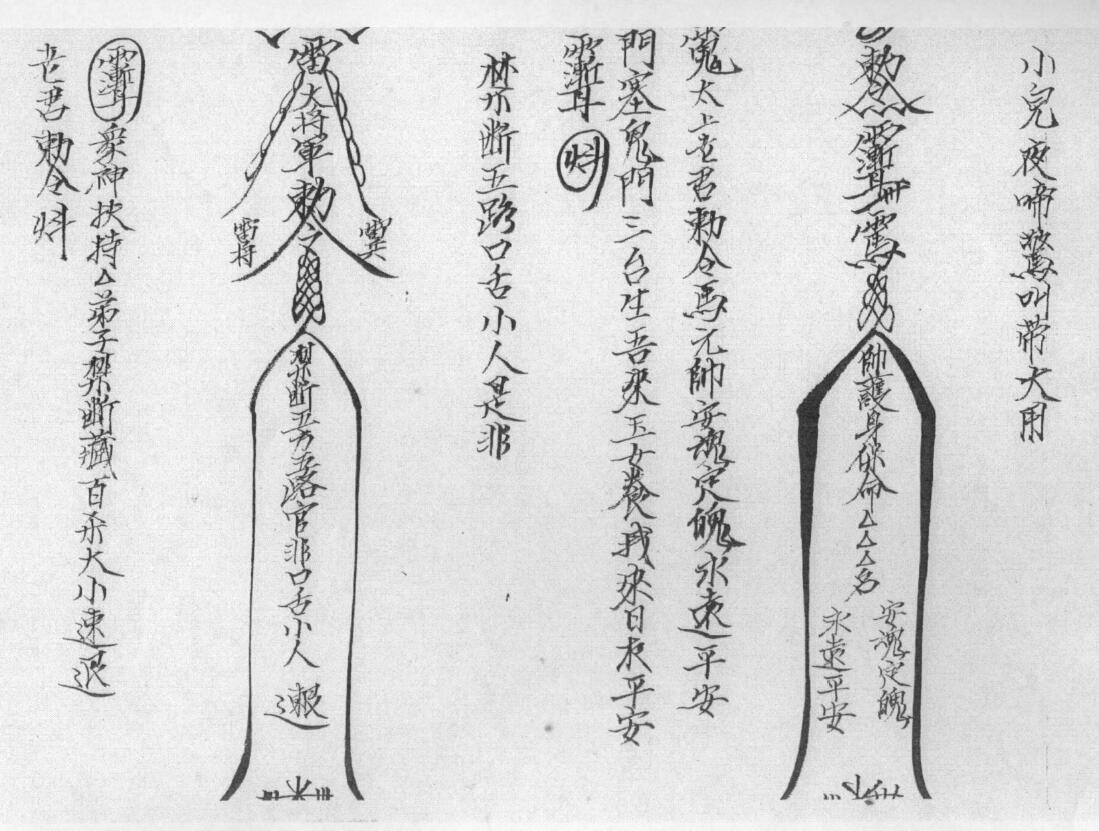 小兒夜啼驚叫帶大用
勅令
馬
帥護身保命△△△名
安魂定魄
永遠平安
太上老君勅令馬元帥安魂定魄永遠平安
門塞鬼門三台生吾來玉女養我來日夜平安
禁斷五路口舌小人是非
雷大將軍勅令
禁斷五方五路官非口舌小人
速退
眾神扶持△弟子禁斷百杀大小速退
老君勅令